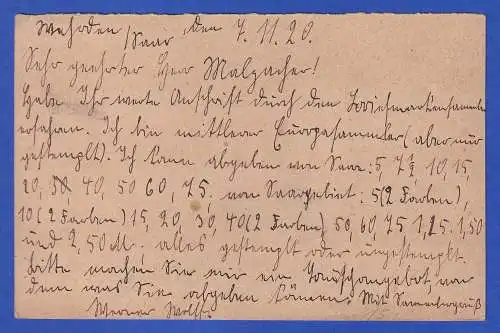 Wehrden /Saar den 7.11.20.
Sehr geehrter Herr Malpacher!
Habe Ihr werte Anschrift durch den Briefmarkensammler
erfahren. Ich bin mittlerer Europasammler (aber nur
gestempelt). Ich kann abgeben von Saar: 5, 7½, 10, 15,
20, 30, 40, 50 60, 75. von Saargebiet: 5 (2 Farben),
10 (2 Farben) 15, 20, 30, 40 (2 Farben) 50, 60, 75 1,25. 1,50
und 2,50 M. alles gestempelt oder ungestempelt.
Bitte machen Sie mir ein Tauschangebot, von
dem was Sie abgeben können. Mit Sammlergruß
Werner Wolff.